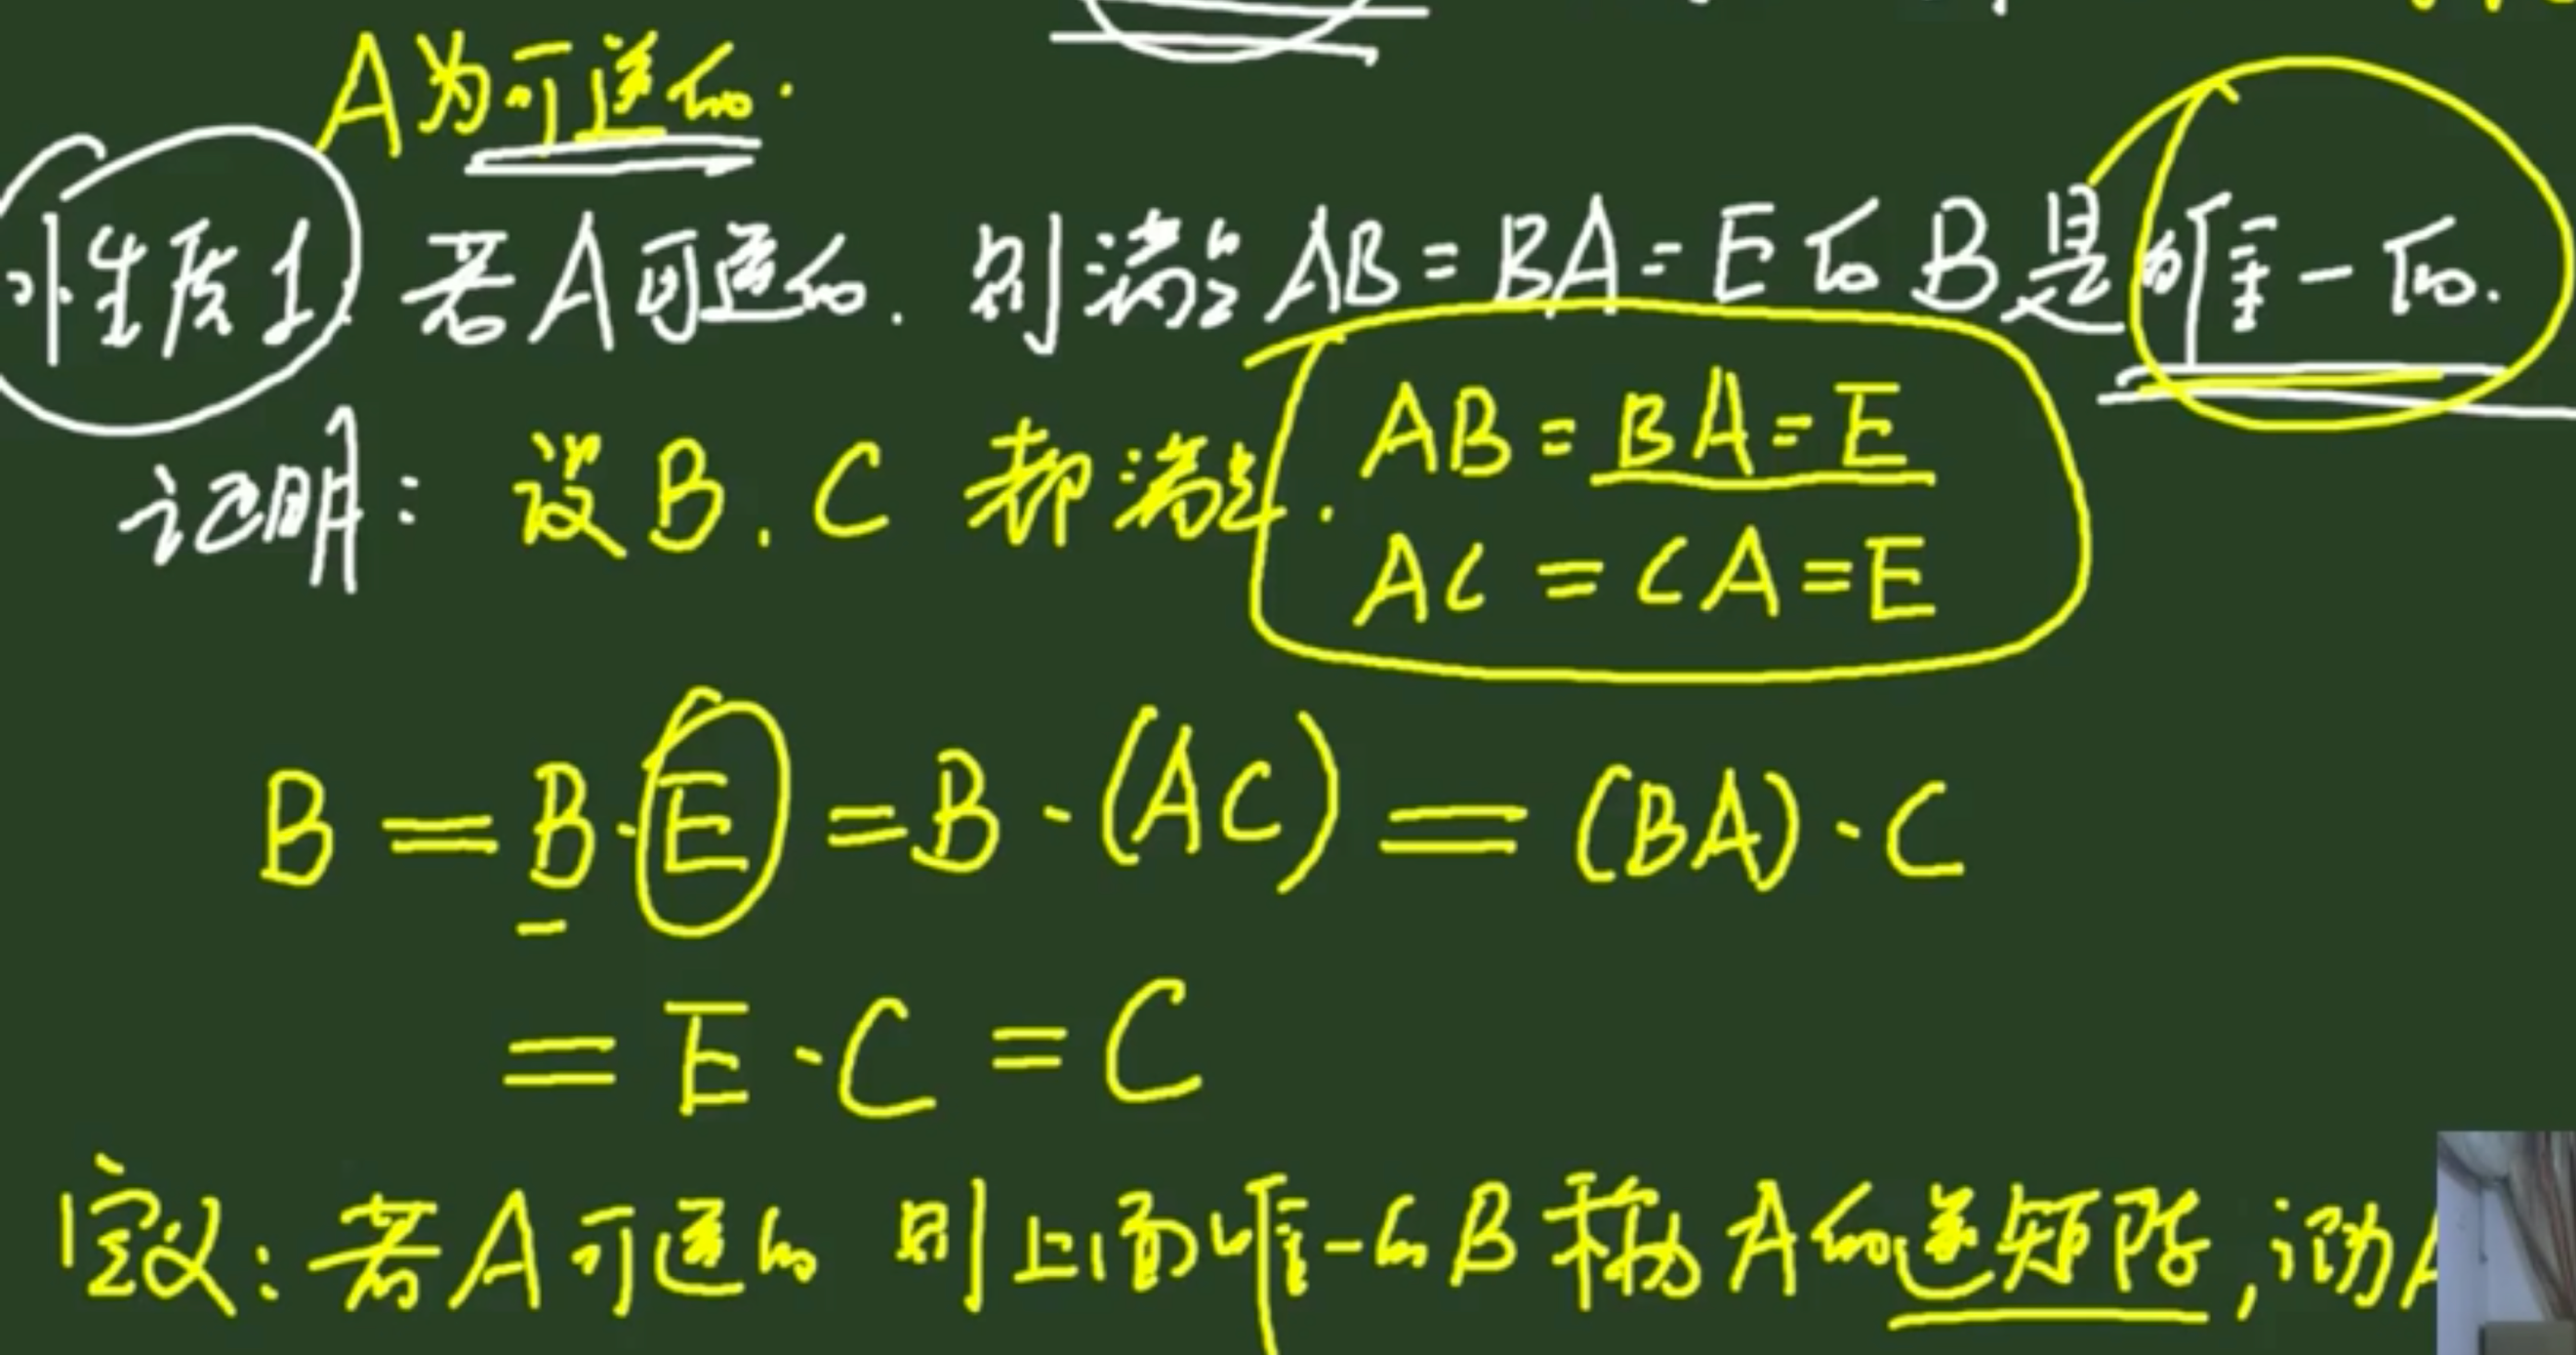 A为可逆的.
性质1 若A可逆的. 则满足AB=BA=E的B是唯一的.
证明: 设B. C 都满足. AB=BA=E
AC=CA=E
B=B·E=B·(AC)=(BA)·C
=E·C=C
定义:若A可逆的 则上面唯一的B称为A的逆矩阵,记为A